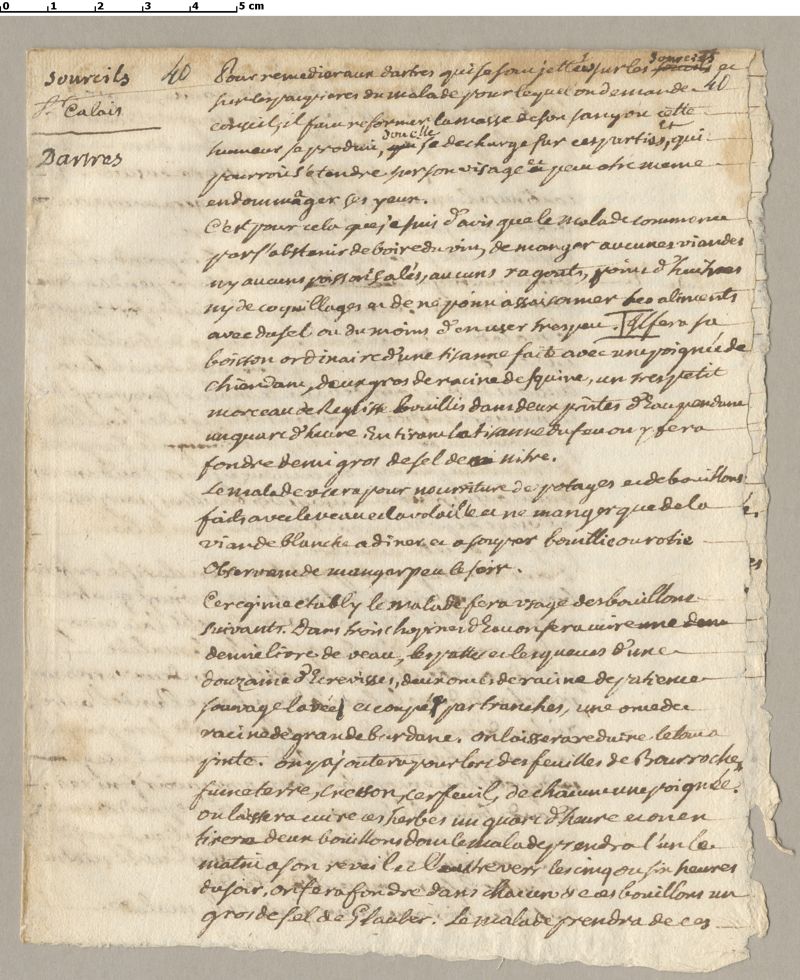 0 1 2 3 4 5 cm
Sourcils 40
St Calais
Dartres
sourcils
Pour remedier aux dartres qui se sont jettées sur les sourcils et
sur les paupieres du malade pour lequel on demande 40
conseil, il faut reformer la masse de son sang ou cette
humeur se produit, d'ou elle se decharge sur ces parties, et qui
pourroit s'etendre sur son visage et peut etre meme
endommager ses yeux.
C'est pour cela que je suis d'avis que le malade commence
par s'abstenir de boire du vin, de manger aucunes viandes
ny aucuns poissons salés, aucuns ragouts, point d'huitres
ny de coquillages et de ne point assaisonner ses aliments
avec du sel ou du moins d'en user tres peu. Il fera sa
boisson ordinaire d'une tisanne faite avec une poignée de
chiendant, deux gros de racine de squine, un tres petit
morceau de Reglisse bouillis dans deux pintes d'Eau pendant
un quart d'heure En tirant la tisanne du feu on y fera
fondre demi gros de sel de nitre.
Le malade usera pour nourriture de potages et de bouillons
faits avec le veau et la volaille et ne manger que de la
viande blanche a diner et a souper bouillie ou rotie
Observant de manger peu le soir.
Ce regime etably le malade fera usage des bouillons
suivants. Dans trois chopines d'Eau on fera cuire une demi
demie livre de veau, les pattes et les queues d'une
douzaine d'Ecrevisses, deux onces de racine de patience
sauvage lavée et coupée par tranches, une once de
racine de grande bardane. on laissera reduire le tout a
pinte. on y ajoutera pour lors des feuilles de Bourroche,
fumeterre, Cresson, cerfeuil, de chacune une poignée.
on laissera cuire ces herbes un quart d'heure et on en
tirera deux bouillons dont le malade prendra l'un le
matin a son reveil et l'autre vers les cinq ou six heures
du soir, on fera fondre dans chacun de ces bouillons un
gros de sel de Glauber. Le malade prendra de ces